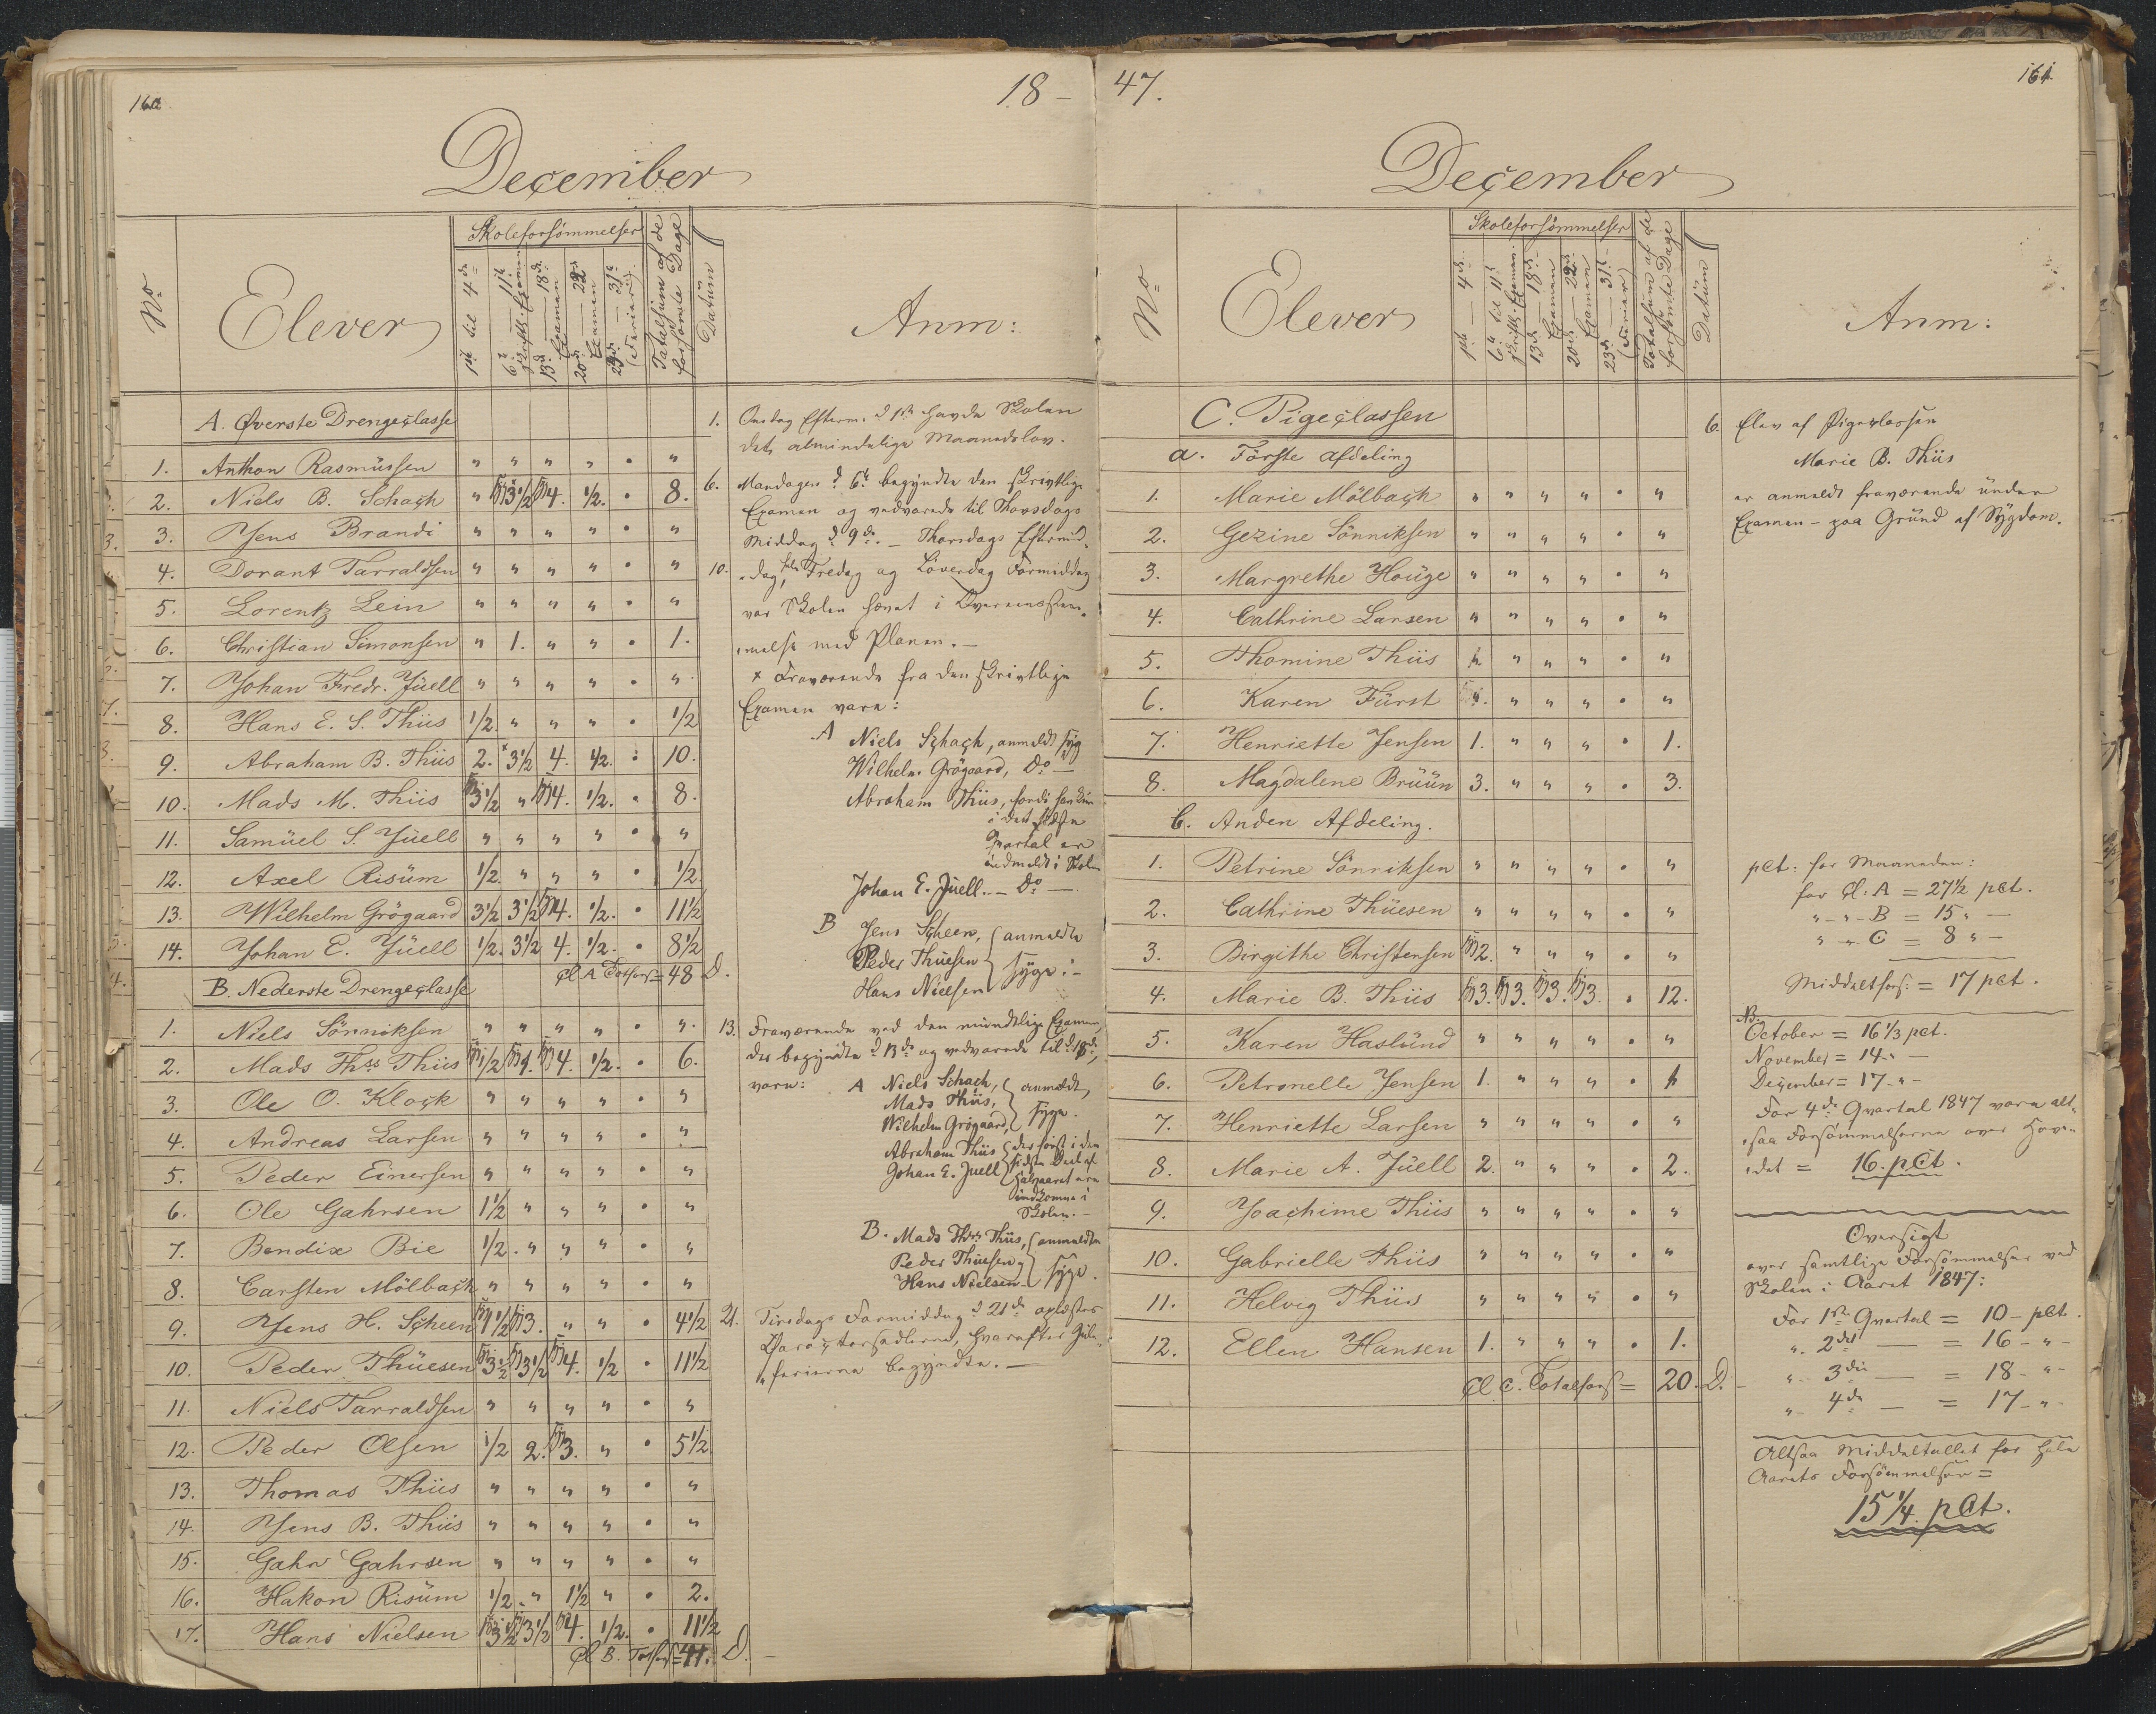 18 –
December
No
Elever
Skoleforsömmelser
1ste til 4de
6te — 11te
Skriftl. Examen
13de — 18de
Examen
20de — 22de
Examen
23de — 31te
(Ferier)
Totalsum af de
forsømte Dage
Datüm
Anm:
A. Øverste Drengeclasse
1. Anthon Rasmüssen " " " " • "
2. Niels B. Schach " 3 1/2 4. 1/2. • 8.
3. Jens Brandi " " " " • "
4. Dorant Tarraldsen " " " " • "
5. Lorentz Lein " " " " • "
6. Christian Simonsen " 1. " " • 1.
7. Johan Fredr. Jüell " " " " • "
8. Hans E. S. Thiis 1/2. " " " • 1/2
9. Abraham B. Thiis 2. × 3 1/2 4. 1/2. • 10.
10. Mads M. Thiis 3 1/2 " 4. 1/2. • 8.
11. Samüel S. Jüell " " " " • "
12. Axel Risüm 1/2. " " " • 1/2.
13. Wilhelm Grögaard 3 1/2 3 1/2 4. 1/2. • 11 1/2
14. Johan E. Jüell 1/2. 3 1/2 4. 1/2. • 8 1/2
Cl. A Totfors = 48 D.
B. Nederste Drengeclasse
1. Niels Sönniksen " " " " • "
2. Mads Ths Thiis 1/2 1. 4. 1/2. • 6.
3. Ole O. Klock " " " " • "
4. Andreas Larsen " " " " • "
5. Peder Einersen " " " " • "
6. Ole Gahrsen 1 1/2 " " " • "
7. Bendix Bie 1/2. " " " • "
8. Carsten Mölbach " " " " • "
9. Jens H. Scheen 1 1/2 3. " " • 4 1/2
10. Peder Thüesen 3 1/2 3 1/2 4. 1/2 • 11 1/2
11. Niels Tarraldsen " " " " • "
12. Peder Olsen 1/2 2. 3. " • 5 1/2
13. Thomas Thiis " " " " • "
14. Jens B. Thiis " " " " • "
15. Gahr Gahrsen " " " " • "
16. Hakon Risüm 1/2. " 1 1/2 " • 2.
17. Hans Nielsen 3 1/2 3 1/2 4. 1/2. • 11 1/2
Cl. B. Totfors = 41. D.
1. Onsdag Efterm. d 1ste havde Skolen
det almindelige Maanedslov.
6. Mandagen d. 6te begyndte den skrivtlige
Examen og vedvarede til Thorsdags
Middag d. 9de. – Thorsdags Eftermid-
10. dag, Fredag og Löverdag Formiddag
var Skolen hævet i Overensstem-
melse med Planen. –
× Fraværende fra den skrivtlige
Examen vare:
A Niels Schach, anmeldt syg
Wilhelm Grögaard, Do –
Abraham Thiis, fordi han
i det sidste
Qvartal er
indmeldt i Skolen
Johan E. Jüell. – Do –
B Jens Scheen, anmeldte
Peder Thüesen syge. –
Hans Nielsen
13. Fraværende ved den mündtlige Examen,
der begyndte d 13de og vedvarede til d 18de,
vare: A Niels Schach, anmeldt
Mads Thiis, syge.
Wilhelm Grögaard,
Abraham Thiis der först i den
Johan E. Juell sidste Deel af
Halvaaret ere
indkomne i
Skolen. –
B. Mads Ths Thiis, anmeldte
Peder Thüesen, syge.
Hans Nielsen –
21. Tirsdags Formiddag d 21de oplæstes
Characterseddlerne, hvorefter Jüle-
ferierne begyndte. –
47.
161.
December
No
Elever
Skoleforsömmelser
1ste — 4de
6te til 11te
Skriftl. Examen
13de — 18de
Examen
20de — 22de
Examen
23de — 31te
(Ferier)
Totalsum af de
forsømte Dage
Datüm
Anm:
C. Pigeclassen
a. Förste Afdeling
1. Marie Mölbach " " " " • "
2. Gezine Sönniksen " " " " • "
3. Margrethe Houge " " " " • "
4. Cathrine Larsen " " " " • "
5. Thomine Thiis " " " • "
6. Karen Fürst " " " • "
7. Henriette Jensen 1. " " " • 1.
8. Magdalene Brüün 3. " " " • 3.
b. Anden Afdeling.
1. Petrine Sönniksen " " " " • "
2. Cathrine Thüesen " " " " • "
3. Birgithe Christensen 2. " " " • "
4. Marie B. Thiis 3. 3. 3. 3. • 12.
5. Karen Haslünd " " " " • "
6. Petronelle Jensen 1. " " " • 1
7. Henriette Larsen " " " " • "
8. Marie A. Jüell 2. " " " • 2.
9. Joachime Thiis " " " " • "
10. Gabrielle Thiis " " " " • "
11. Helvig Thiis " " " " • "
12. Ellen Hansen 1. " " " • 1.
Cl. C. Totalfors = 20. D.
6. Elev af Pigeclassen
Marie B. Thiis
er anmeldt fraværende ünder
Examen – paa Gründ af Sÿgdom.
pCt. for Maaneden:
for Cl. A = 27 1/2 pCt.
" – " – B = 15 " –
" – " C = 8 " –
Middeltfors. = 17 pCt.
NB.
October = 16 1/3 pCt.
November = 14 " –
December = 17 " –
For 4de Qvartal 1847 vare alt-
saa Forsömmelserne over Hove-
det = 16. pCt.
Oversigt
over samtlige Forsömmelser ved
Skolen i Aaret 1847:
For 1ste Qvartal = 10 – pCt.
" 2det — = 16 – " –
" 3die — = 18 – " –
" 4de — = 17 – " –
Altsaa Middeltallet for hele
Aarets Forsömmelser =
15 1/4. pCt.